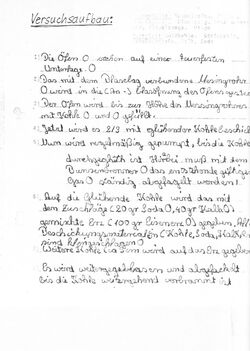 Versuchsaufbau:
Die Öfen O stehen auf einer feuerfesten
Unterlage. O
Das mit dem Blasebalg verbundene Messingrohr
O wird in die
Der Ofen wird bis zur Höhe des Messingrohres
mit Kohle O und O gefüllt.
Jetzt wird es 2/3 mit glühender Kohle beschickt
Nun wird regelmäßig gepumpt, bis die Kohle
durchgeglüht ist. Hierbei muß mit dem
Bunsenbrenner O das entstehende giftige
Gas O ständig abgefackelt werden!
Auf die Glühende Kohle wird das mit
dem Zuschläge (20 gr Soda O, 40 gr Kalk O)
gemischte Erz (100 gr Eisenerz O) gegeben.
Beschickungsmaterialien (Kohle, Soda, Kalk
sind kleingeschlagen O
Weitere Kohle wird auf das Erz gegeben
Es wird weitergeblasen und abgefackelt
bis die Kohle weitgehend verbrannt ist